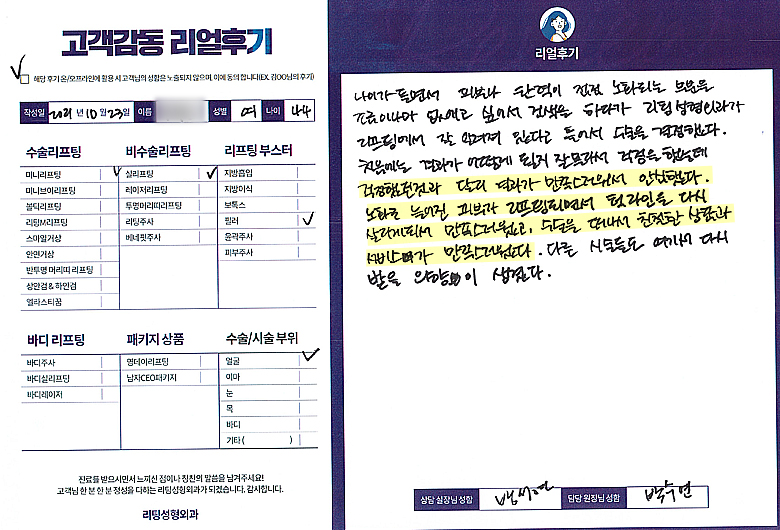 고객감동 리얼후기
해당 후기 온/오프라인에 활용 시 고객님의 성함은 노출되지 않으며, 이에 동의 합니다(EX. 김OO님의 후기)
작성일 2021년 10월 23일 이름 성별 여 나이 44
수술리프팅
미니리프팅
미니브이리프팅
볼틱리프팅
리팅M리프팅
스마일거상
안면거상
반투명 머리띠 리프팅
상안검 & 하안검
엘라스티꿈
비수술리프팅
실리프팅
레이저리프팅
투명머리띠리프팅
리팅주사
베네핏주사
리프팅 부스터
지방흡입
지방이식
보톡스
필러
윤곽주사
피부주사
바디 리프팅
바디주사
바디실리프팅
바디레이저
패키지 상품
원데이리프팅
남자CEO패키지
수술/시술 부위
얼굴
이마
눈
목
바디
기타 ( )
진료를 받으시면서 느끼신 점이나 칭찬의 말씀을 남겨주세요!
고객님 한 분 한 분 정성을 다하는 리팅성형외과가 되겠습니다. 감사합니다.
리팅성형외과
리얼후기
나이가 들면서 피부와 탄력이 점점 노화되는 부분을
조금이나마 없애고 싶어서 검색을 하다가 리팅성형외과가
리프팅에서 잘 알려져 있다고 들어서 수술을 결정했다.
처음에는 결과가 어떻게 될지 잘 몰라서 걱정을 했는데
걱정했던것과 달리 결과가 만족스러워서 안심했다.
노화로 늘어진 피부가 리프팅되면서 턱라인을 다시
살리게되서 만족스러웠고, 수술을 떠나서 친절한 상담과
서비스가 만족스러웠다. 다른 시술들도 여기서 다시
받을 의향이 생겼다.
상담 실장님 성함 담당 원장님 성함 박수연